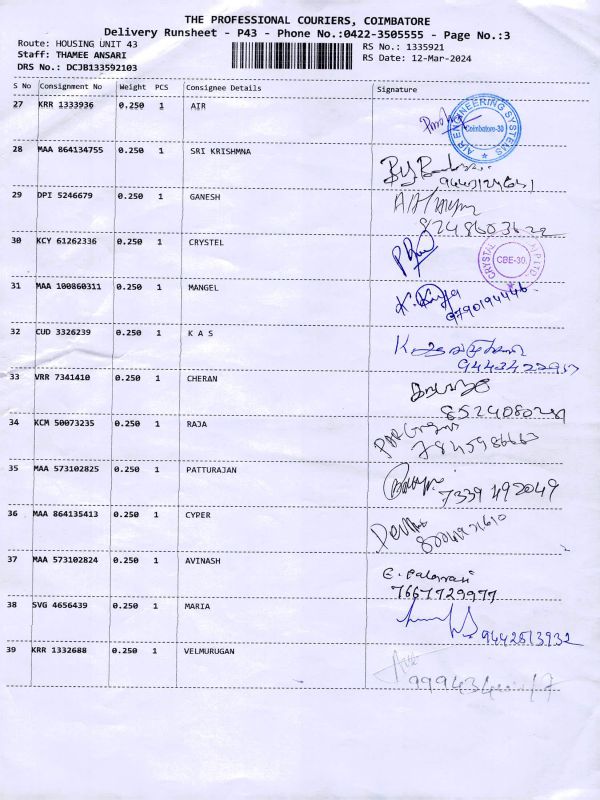 THE PROFESSIONAL COURIERS, COIMBATORE
Delivery Runsheet - P43 - Phone No.:0422-3505555 - Page No.:3
Route: HOUSING UNIT 43
Staff: THAMEE ANSARI
DRS No.: DCJB133592103
RS No.: 1335921
RS Date: 12-Mar-2024
S No Consignment No Weight PCS Consignee Details Signature
27 KRR 1333936 0.250 1 AIR
AIR ENGINEERING SYSTEMS
Coimbatore-30
28 MAA 864134755 0.250 1 SRI KRISHMNA
29 DPI 5246679 0.250 1 GANESH
30 KCY 61262336 0.250 1 CRYSTEL
CBE-30.
31 MAA 100860311 0.250 1 MANGEL
9790194446
32 CUD 3326239 0.250 1 K A S
33 VRR 7341410 0.250 1 CHERAN
34 KCM 50073235 0.250 1 RAJA
7845986663
35 MAA 573102825 0.250 1 PATTURAJAN
7339 492049
36 MAA 864135413 0.250 1 CYPER
37 MAA 573102824 0.250 1 AVINASH
7667729977
38 SVG 4656439 0.250 1 MARIA
9442513932
39 KRR 1332688 0.250 1 VELMURUGAN